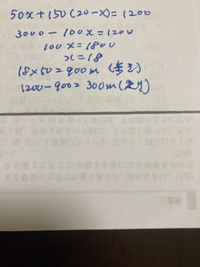 50x+150(20-x)=1200
3000-100x=1200
100x=1800
x=18
18×50=900m(歩き)
1200-900=300m(走り)